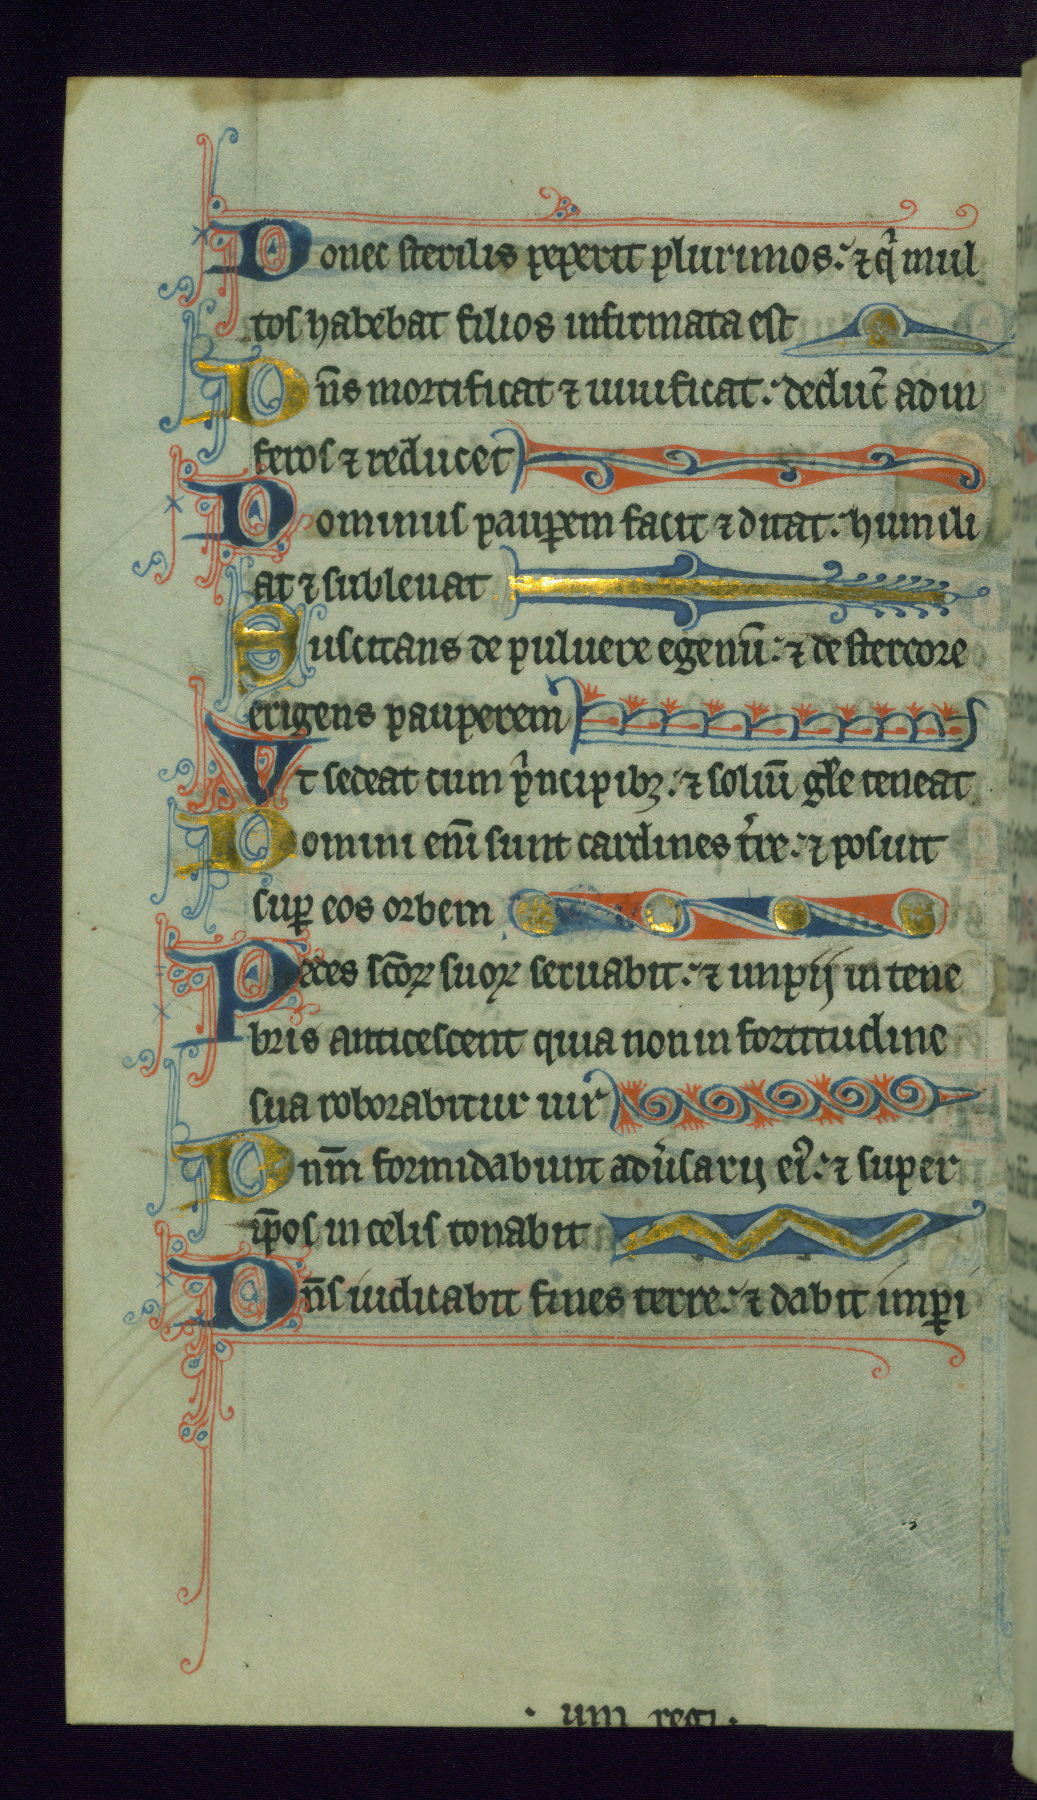 Donec sterilis peperit plurimos: ⁊ q̄ mul
tos habebat filios infirmata est
Dn̄s mortificat ⁊ uiuificat: deducit ad in
feros ⁊ reducet
Dominus paup̱em facit ⁊ ditat: humili
at ⁊ subleuat
Suscitans de puluere egenū: ⁊ de stercore
erigens pauperem
Vt sedeat cum pⁱncipibꝫ: ⁊ soliū gl̄e teneat
Domini eni̅ sunt cardines t̄re: ⁊ posuit
suꝑ eos orbem
Pedes sc̄oꝝ suoꝝ seruabit: ⁊ impij in tene
bris conticescent quia non in fortitudine
sua roborabitur uir
Dn̄m formidabunt adu̓sarij eiꝰ: ⁊ super
ip̄os in celis tonabit
Dn̄s iudicabit fines terre: ⁊ dabit imꝑi
· um regi ·